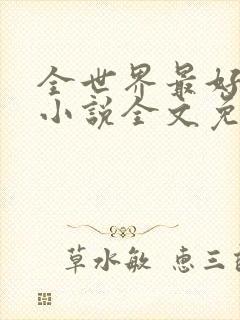 全世界最好
小说全文免
草水敏 惠三